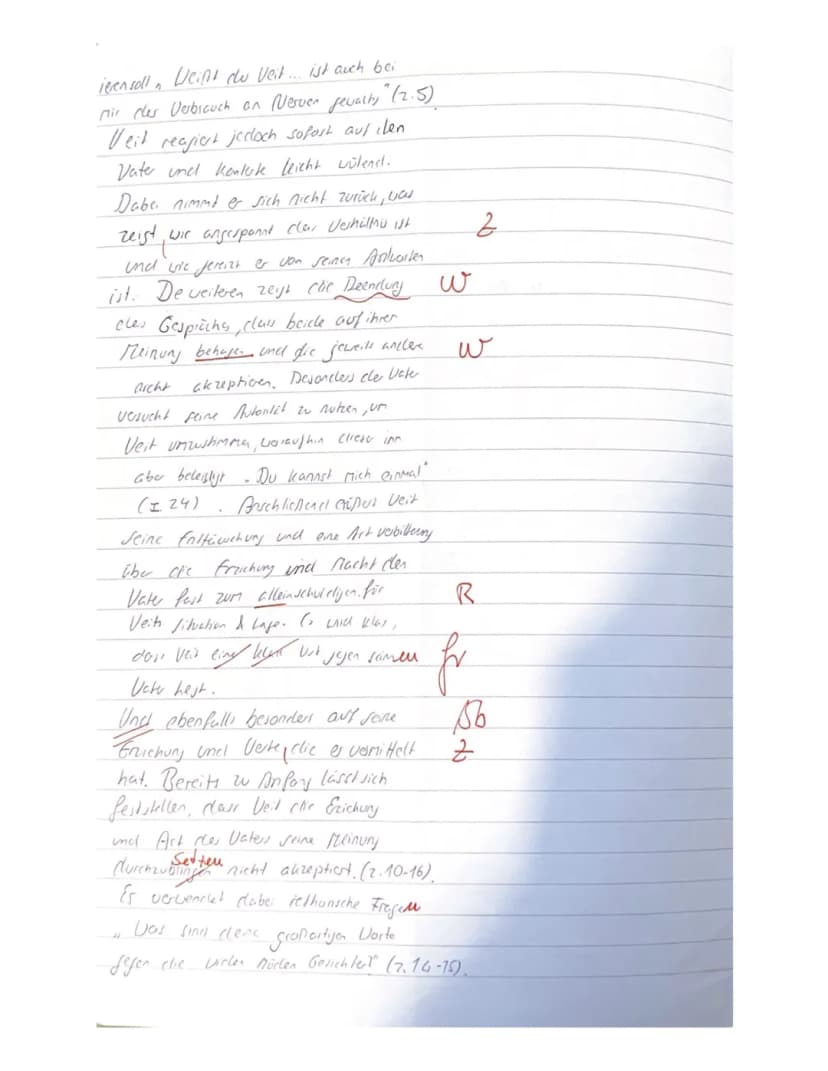 ieren soll „Weißt du Veit... ist auch bei
mir der Verbrauch an Nerven gewaltig" (Z.5)
Veit reagiert jedoch sofort auf den
Vater und kontert leicht wütend.
Dabei nimmt er sich nicht zurück, was
zeigt, wie angespannt das Verhältnis ist Z
und wie gereizt er von seinen Antworten
ist. Des weiteren zeigt die Beendung W
des Gesprächs, dass beide auf ihrer
Meinung behagen und die jeweils andere W
nicht akzeptieren. Besonders der Vater
versucht seine Autorität zu nutzen, um
Veit umzustimmen, woraufhin dieser ihn
aber beleidigt „Du kannst mich einmal"
(Z. 24). Anschließend äußert Veit
seine Enttäuschung und eine Art verbitterung
über die Erziehung und macht den
Vater fast zum alleinschuldigen für R
Veits Situation & Lage. Es wird klar,
dass Veit eine Wut gegen seinen fr
Vater hegt.
Und ebenfalls besonders auf seine Sb
Erziehung und Werte, die er vermittelt Z
hat. Bereits zu Anfang lässt sich
feststellen, dass Veit die Erziehung
und Art des Vaters seine Meinung
Setzen
durchzubringen nicht akzeptiert. (Z. 10-16).
Er verwendet dabei rethorische Fragen
„Was sind deine großartigen Worte
gegen die vielen Gesichter" (Z. 14-15).